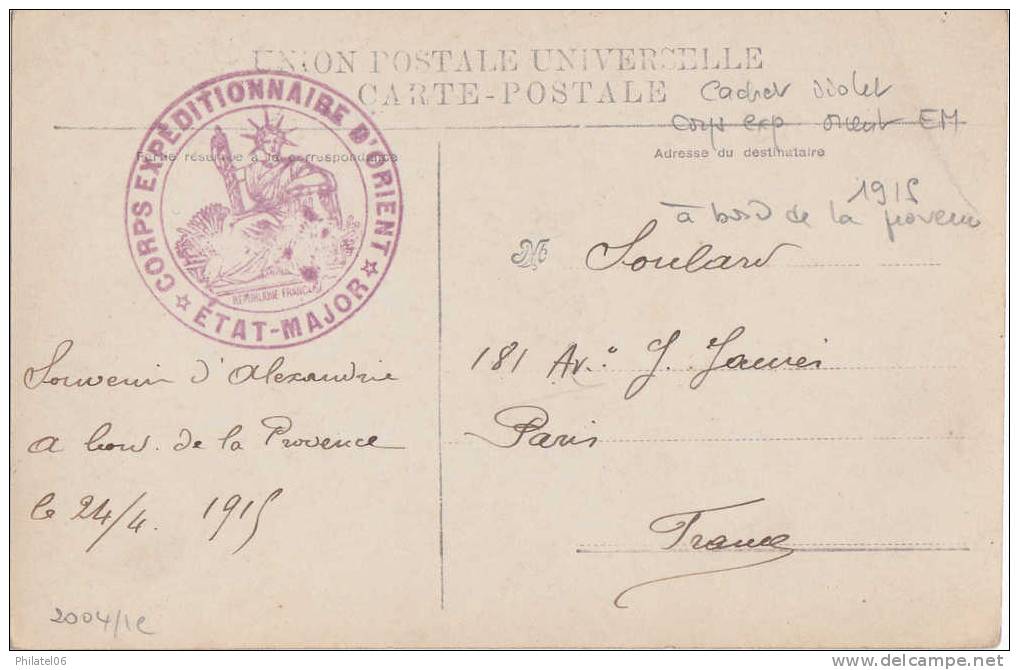 UNION POSTALE UNIVERSELLE
CARTE-POSTALE
Cachet violet
corps exp orient EM
Partie réservée à la correspondance
Adresse du destinataire
1915
à bord de la provence
CORPS EXPÉDITIONNAIRE D'ORIENT
☆ ÉTAT-MAJOR ☆
REPUBLIQUE FRANCAISE
M Soulard
181 Av. J. Jaurès
Paris
France
Souvenir d'Alexandrie
a bord de la Provence
le 24/4. 1915
2004/1c
Philatel06
www.delcampe.net